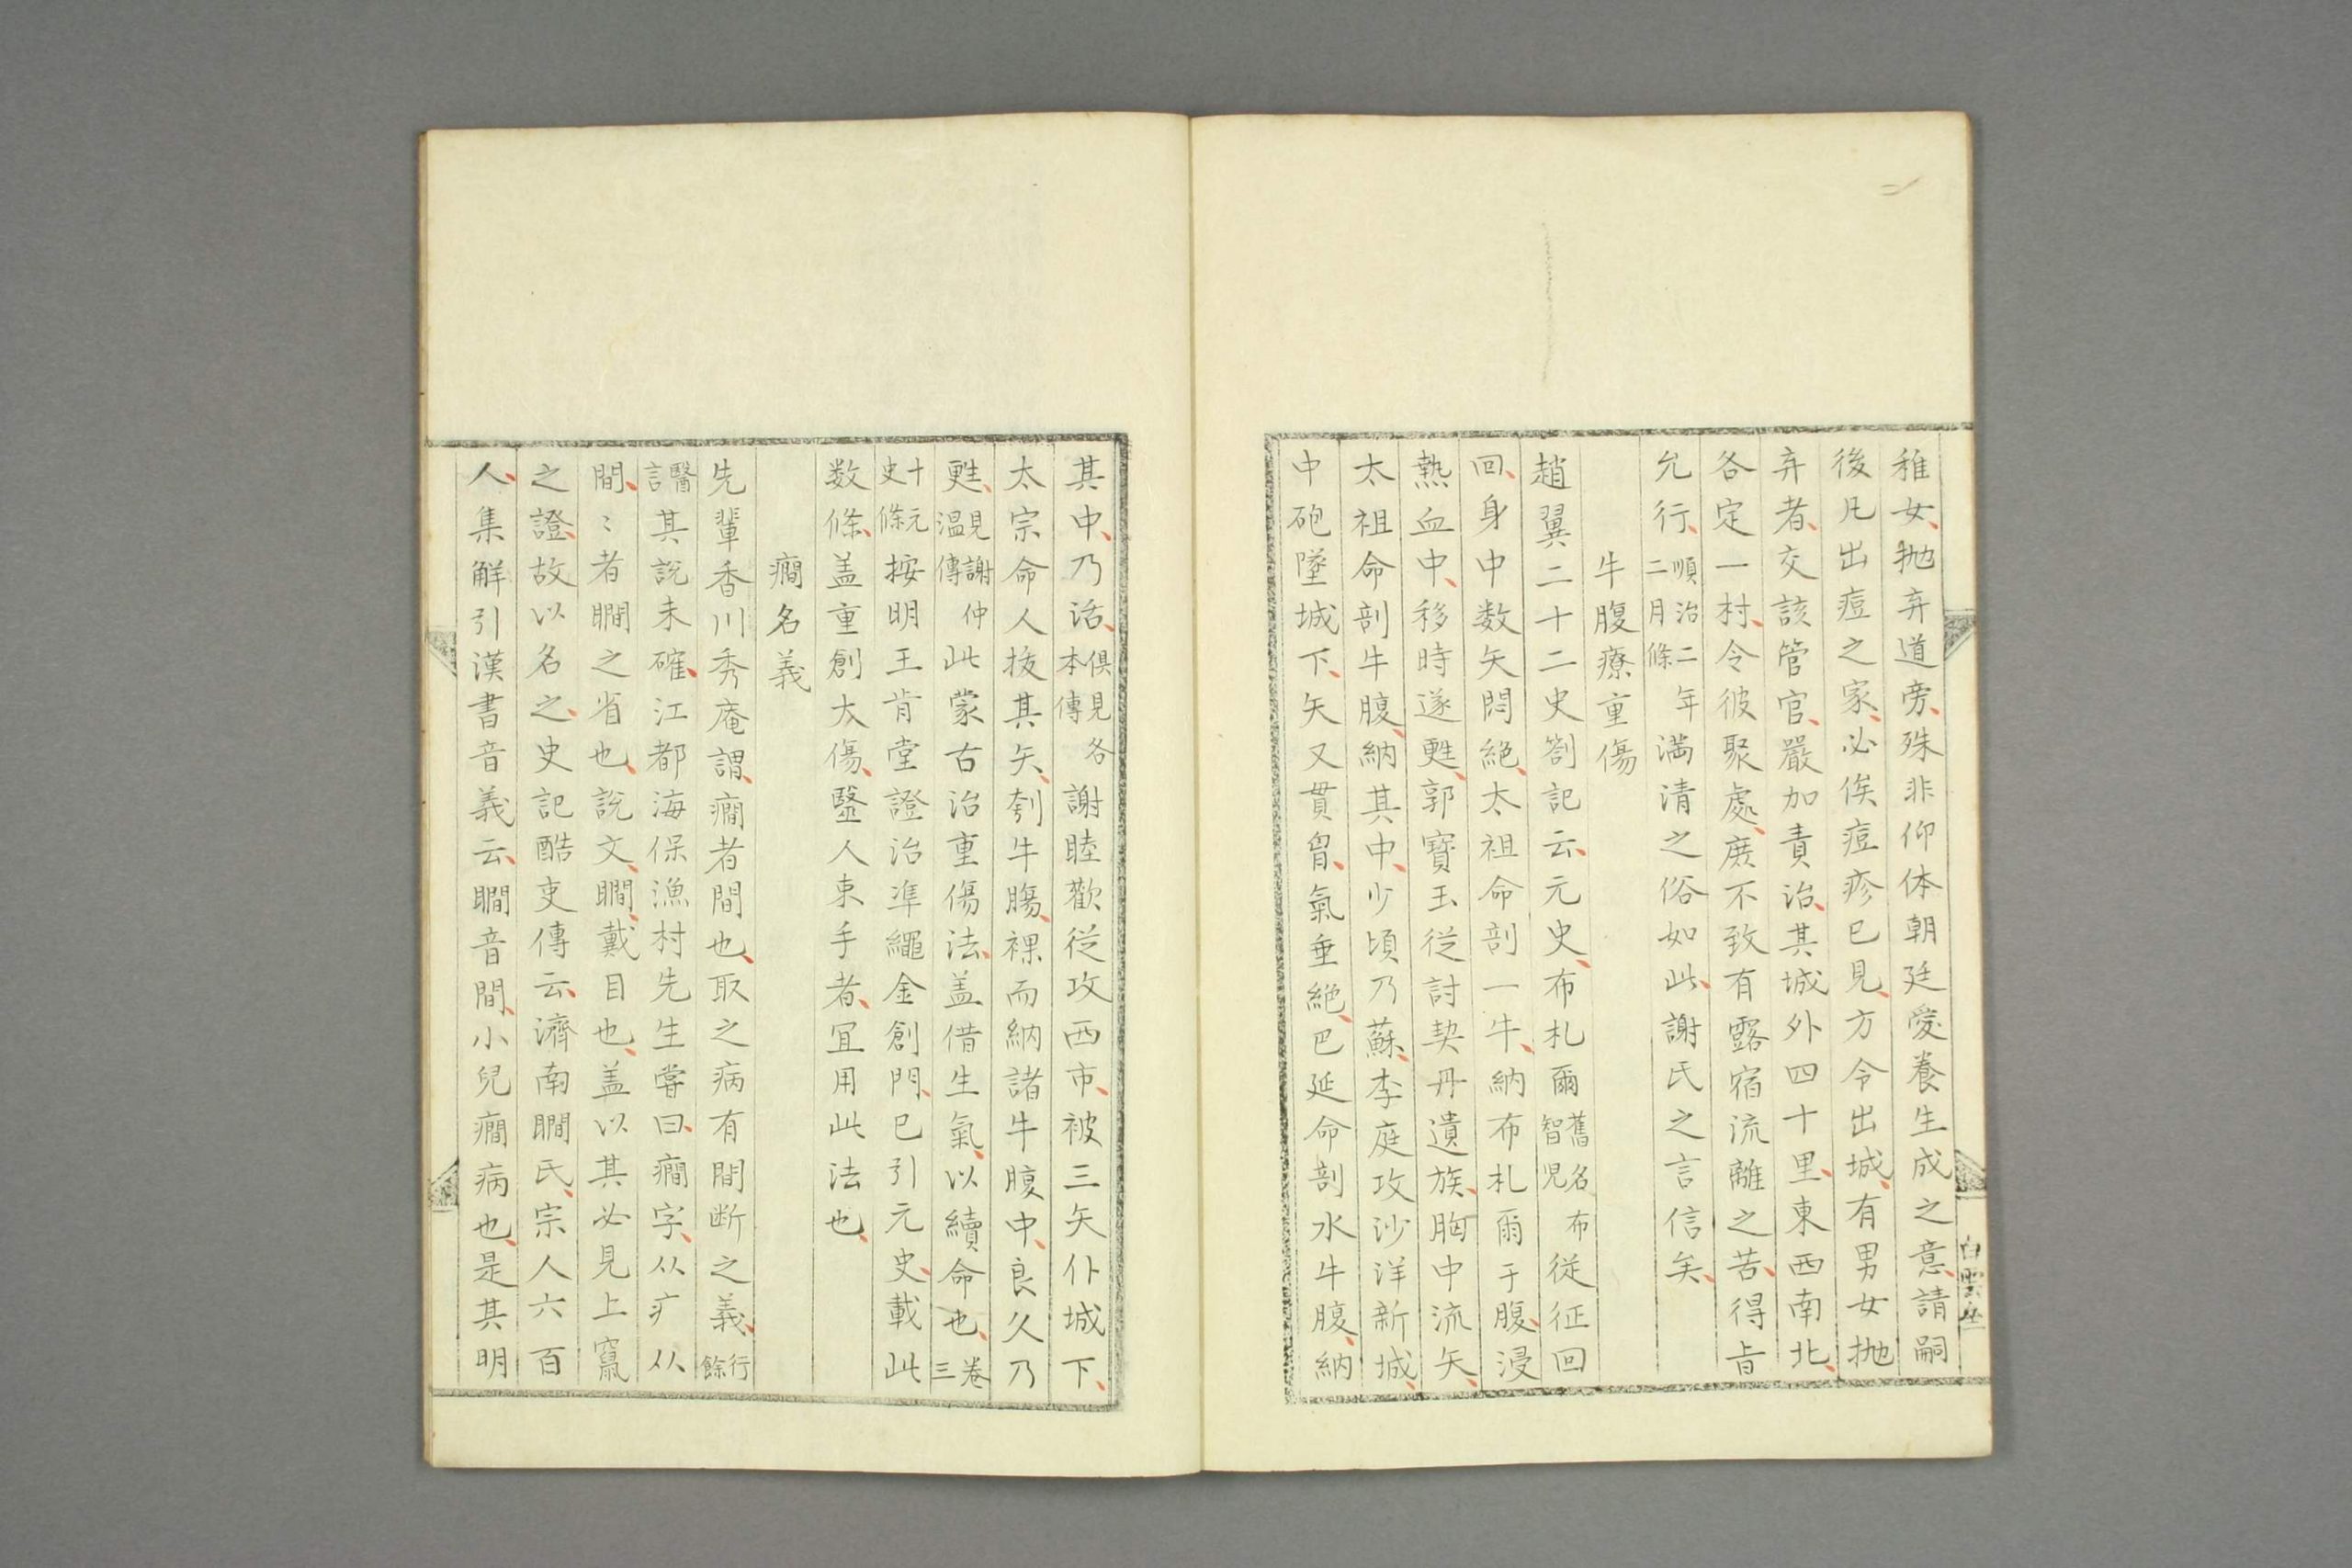 稚女、抛弃道旁、殊非仰体朝廷愛養生成之意、請嗣
後凡出痘之家、必俟痘疹已見、方令出城、有男女抛
弃者、交該管官、嚴加責治、其城外四十里、東西南北、
各定一村、令彼聚處、庶不致有露宿流離之苦、得旨
允行、順治二年二月條満清之俗如此、謝氏之言信矣、
牛腹療重傷
趙翼二十二史劄記云、元史、布札爾舊名布智児從征回
回、身中数矢悶絶、太祖命剖一牛、納布札爾于腹、浸
熱血中、移時遂甦、郭寶玉從討契丹遺族、胸中流矢、
太祖命剖牛腹、納其中、少頃乃蘇、李庭攻沙洋新城、
中砲墜城下、矢又貫胷、氣垂絶、巴延命剖水牛腹、納
其中、乃活、俱見各本傳謝睦歡從攻西市、被三矢仆城下、
太宗命人拔其矢、刳牛腸、裸而納諸牛腹中、良久乃
甦、見謝仲温傳此蒙古治重傷法、盖借生氣、以續命也、卷三
十元史條按明王肯堂證治準繩金創門、已引元史、載此
数條、盖重創大傷、毉人束手者、宜用此法也、
癇名義
先輩香川秀庵謂、癇者間也、取之病有間断之義、行餘
醫言其説未確、江都海保漁村先生嘗曰、癇字、从疒从
間、〻者瞯之省也、説文、瞯、戴目也、盖以其必見上竄
之證、故以名之、史記酷吏傳云、濟南瞯氏、宗人六百
人、集解引漢書音義云、瞯音間、小兒癇病也、是其明